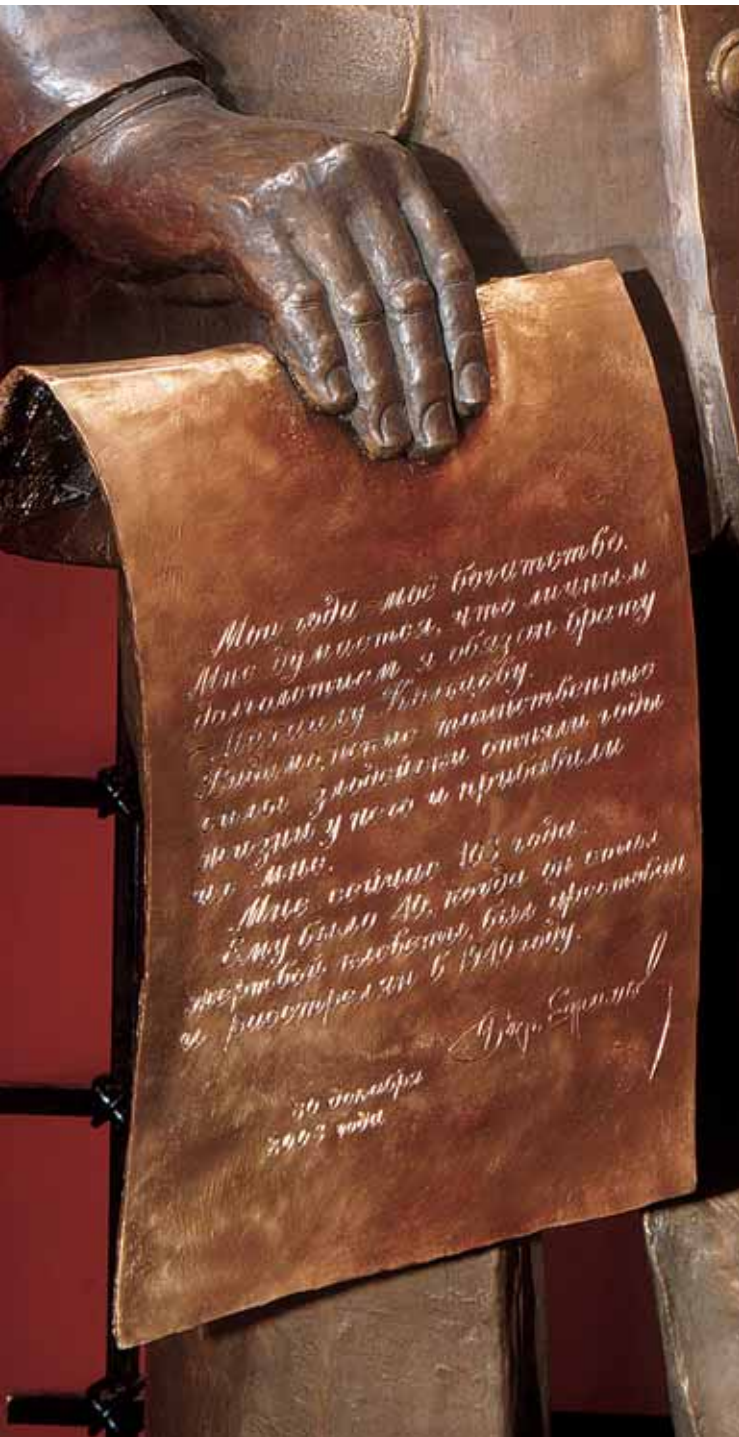 Мои года моё богатство.
Мне думается, что личным
долголетием я обязан брату
Михаилу Кольцову.
Видимо, некие таинственные
силы злодейски отняли годы
жизни у него и прибавили
их мне.
Мне сейчас 103 года.
Ему было 40, когда он стал
жертвой клеветы, был арестован
и расстрелян в 1940 году.
Бор. Ефимов
30 декабря
2003 года